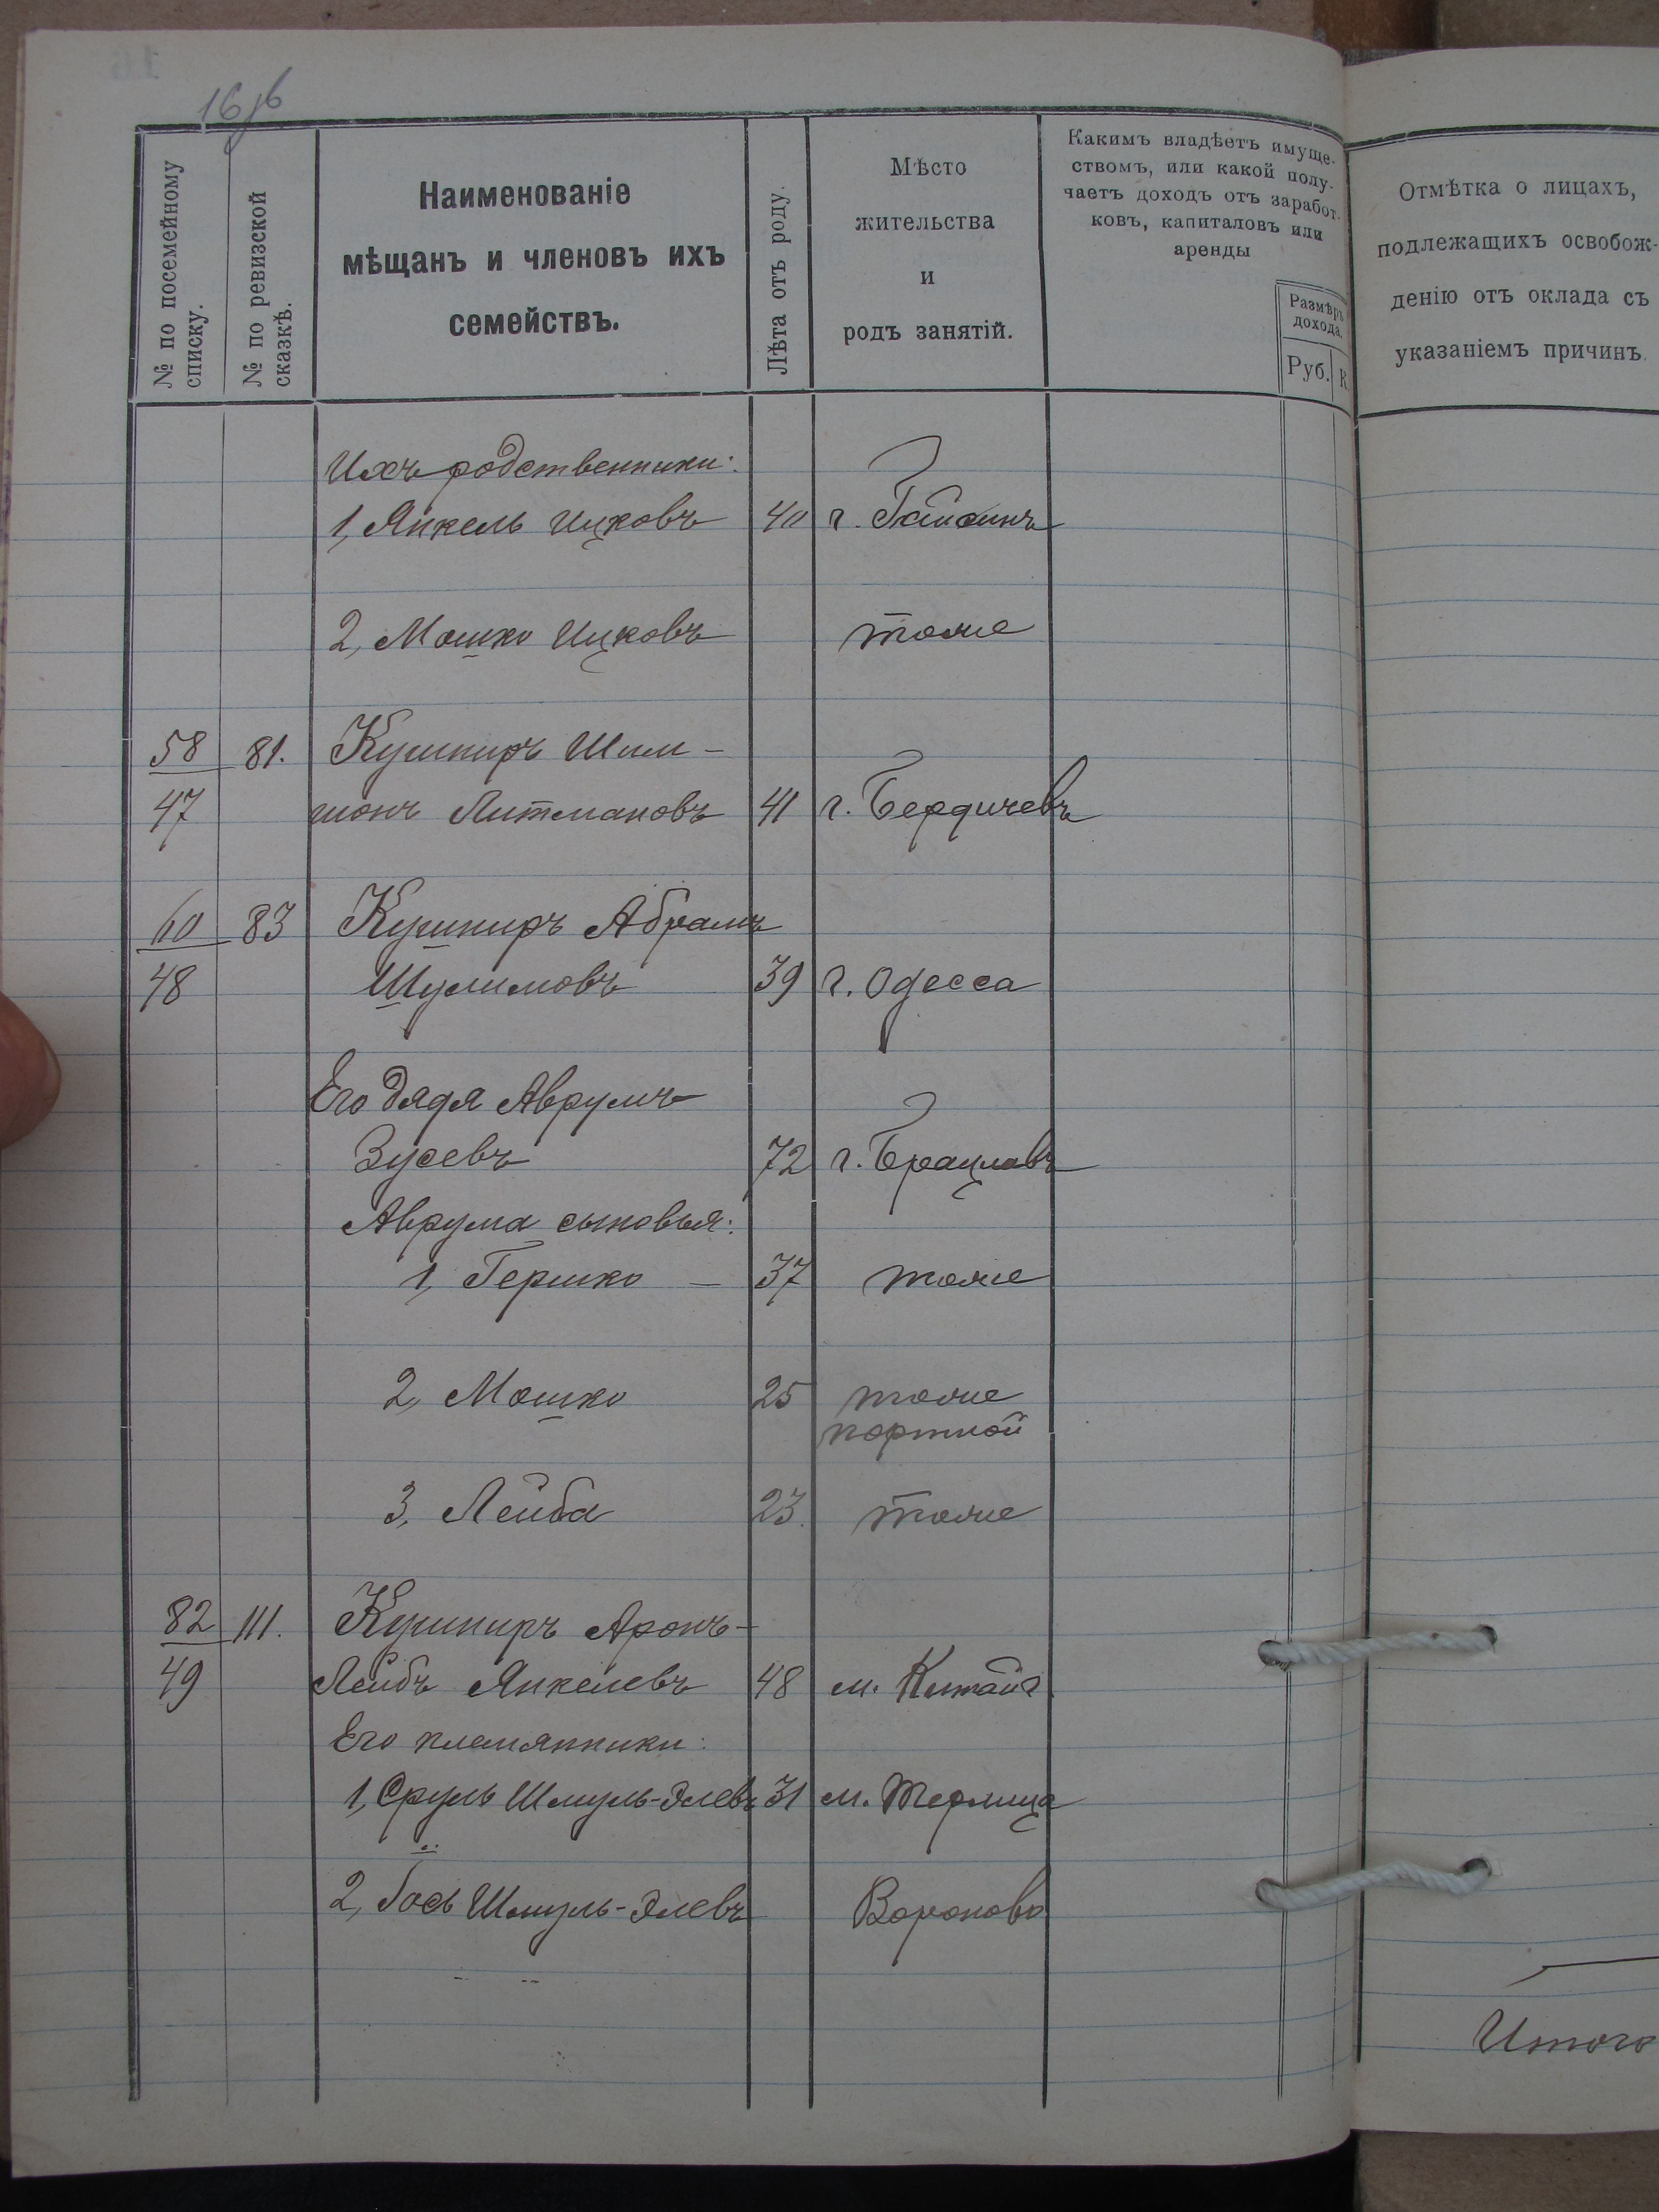 16 об
№ по посемейному
списку.
№ по ревизской
сказкѣ.
Наименованіе
мѣщанъ и членовъ ихъ
семействъ.
Лѣта отъ роду.
Мѣсто
жительства
и
родъ занятій.
Какимъ владѣетъ имуще-
ствомъ, или какой полу-
чаетъ доходъ отъ заработ-
ковъ, капиталовъ или
аренды
Размѣръ
дохода.
Руб. К
Отмѣтка о лицахъ,
подлежащихъ освобож-
денію отъ оклада съ
указаніемъ причинъ.
Ихъ родственники:
1, Янкель Ицковъ 40 г. Гайсинъ
2, Мошко Ицковъ тоже
58 81. Кушниръ Шим-
47 шонъ Литмановъ 41 г. Бердичевъ
60 83 Кушниръ Абрамъ
48 Шулимовъ 39 г. Одесса
Его дядя Аврумъ
Зусевъ 72 г. Брацлавъ
Аврума сыновья:
1, Гершко — 37 тоже
2, Мошко 25 тоже
портной
3, Лейба 23. тоже
82 111. Кушниръ Аронъ-
49 Лейбъ Янкелевъ 48 м. Китай
Его племянники:
1, Сруль Шмуль-Элевъ 31 м. Терлица
2, Іось Шмуль-Элевъ Вороново
Итого